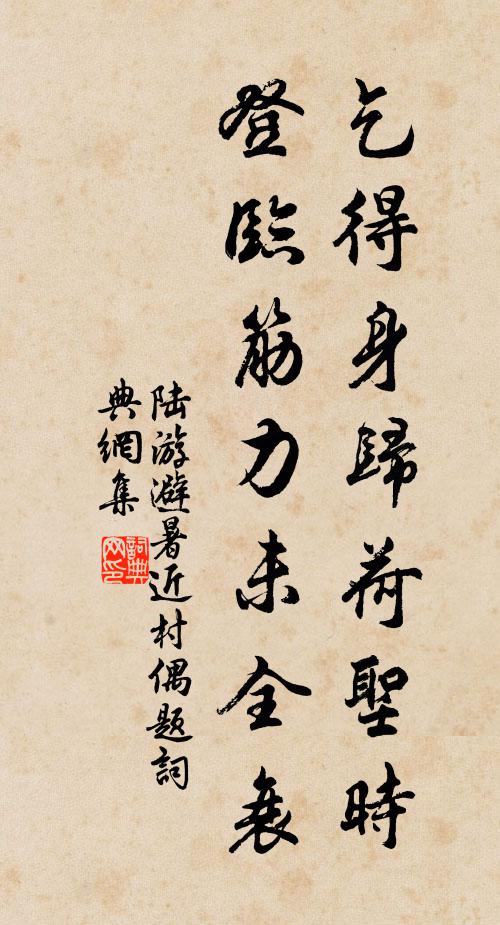 乞得身歸荷聖時
登臨筋力未全衰
陆游避暑近村偶题詞
典網集
詞典
网印